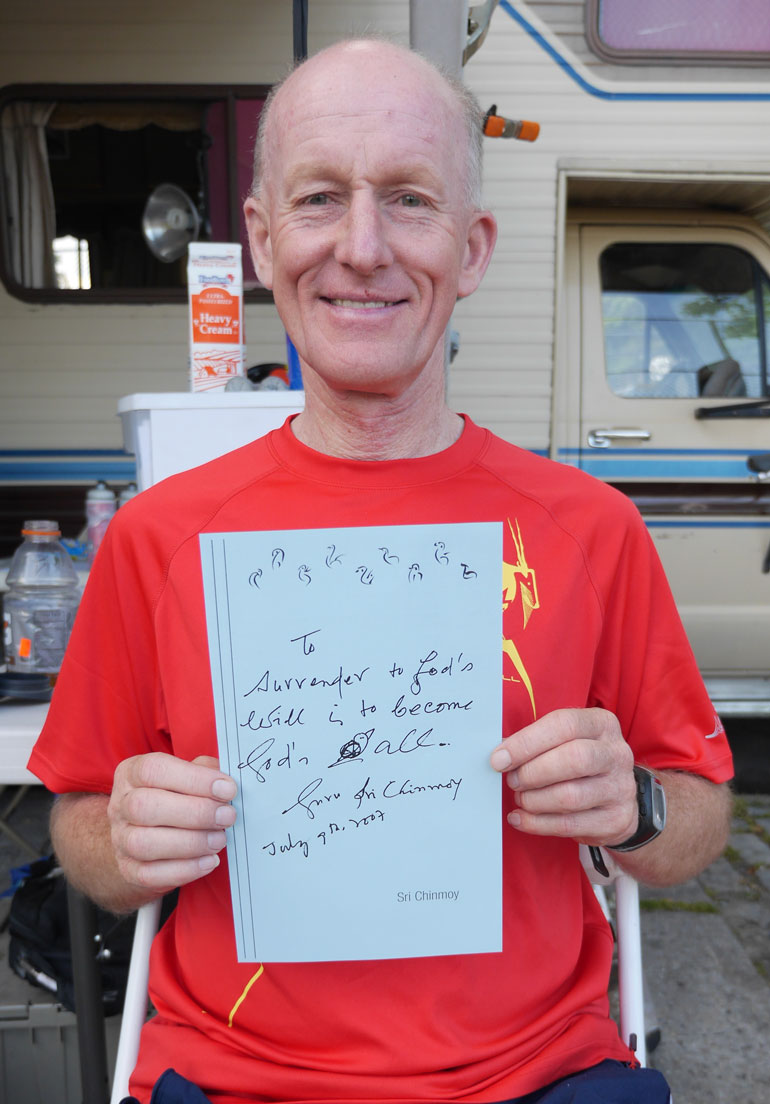 Heavy
Cream
Heavy
Cream
To
Surrender to God's
Will is to become
God's all.
Guru Sri Chinmoy
July 9th, 2007
Sri Chinmoy